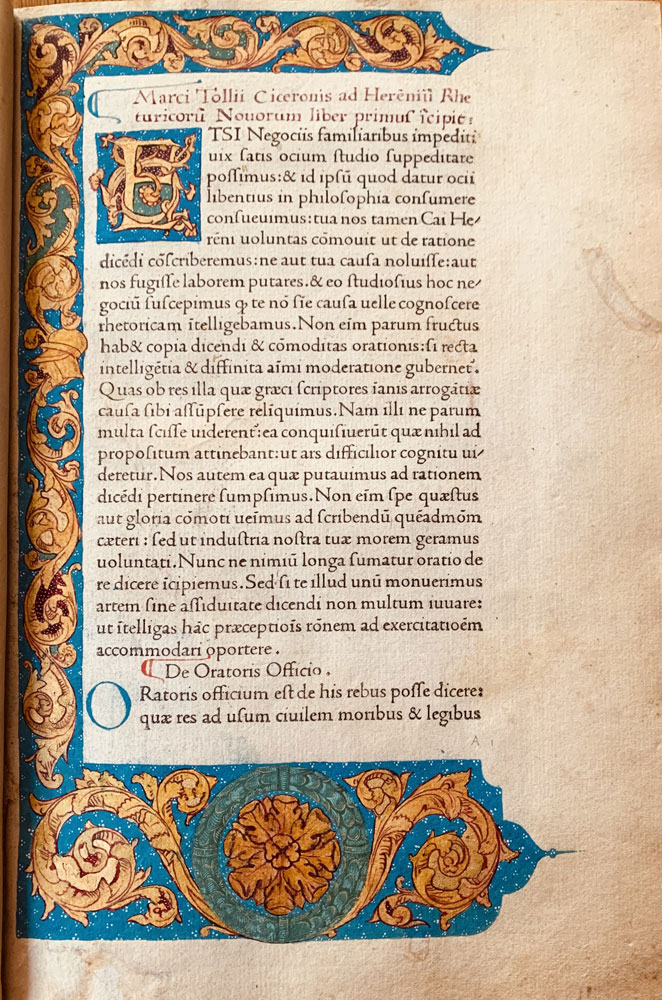 Marci Tollii Ciceronis ad Herēniū Rhe
turicorū Nouorum liber primus īcipit:
ETSI Negociis familiaribus impediti
uix satis ocium studio suppeditare
possimus: & id ipsū quod datur ocii
libentius in philosophia consumere
consueuimus: tua nos tamen Cai He⸗
rēni uoluntas cōmouit ut de ratione
dicēdi cōscriberemus: ne aut tua causa noluisse: aut
nos fugisse laborem putares. & eo studiosius hoc ne⸗
gociū suscepimus ꝙ te nō sīe causa uelle cognoscere
rhetoricam ītelligebamus. Non eīm parum fructus
hab& copia dicendi & cōmoditas orationis: si recta
intelligētia & diffinita aīmi moderatione gubernet᷑.
Quas ob res illa quæ græci scriptores īanis arrogātiæ
causa sibi assūpsere reliquimus. Nam illi ne parum
multa scisse uiderent᷑: ea conquisiuerūt quæ nihil ad
propositum attinebant: ut ars difficilior cognitu ui⸗
deretur. Nos autem ea quæ putauimus ad rationem
dicēdi pertinere sumpsimus. Non eīm spe quæstus
aut gloria cōmoti ueīmus ad scribendū quēadmōm
cæteri: sed ut industria nostra tuæ morem geramus
uoluntati. Nunc ne nimiū longa sumatur oratio de
re dicere īcipiemus. Sed si te illud unū monuerimus
artem sine assiduitate dicendi non multum iuuare:
ut ītelligas hāc præceptiōis rōnem ad exercitatiōem
accommodari oportere.
De Oratoris Officio.
ORatoris officium est de his rebus posse dicere:
quæ res ad usum ciuilem moribus & legibus
A 1